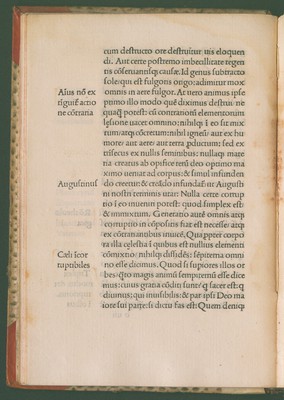 cum destructo ore destruitur uis eloquen
di. Aut certe postremo imbecillitate regen
tis cõseruantisq; causæ. Id genus subtracto
sole: qui est fulgoris origo: adimitur mox
omnis in aere fulgor. At uero animus ipse
primo illo modo quẽ diximus destrui ne
quaq̃ potest: cũ contrariorũ elementorum
lesione uacet omnino: nihilq; ĩ eo sit mix
tum: atq; cõcretum: nihil igneũ: aut ex hu
more: aut aere: aut terra
trisecus ex nullis seminibus: nullaq; mate
ria creatus ab opifice rerũ deo optimo ma
ximo ueniat ad corpus: & simul infunden
do creetur: & creãdo infundat̃: ut Augusti
ni nostri feramus
Nulla certe corrup
tio ĩ eo inueniri potest: quod simplex est:
& immixtum. Generatio autẽ omnis atq;
corruptio in oppositis fiat est necesse: atq;
ex cõtrariantibus inuicẽ. Qua ppter corpo
ra illa celestia ĩ quibus est nullius elementi
cõmixtio: nihilq; dissidẽs: sẽpiterna omni
no esse dicimus. Quod si supiores illos or
bes: q̃to magis animũ sempiternũ esse dice
mus: cuius gratia cõditi sunt: q̃
diuinus: qui inuisibilis: & par ipsi Deo ma
iore sui parte: si dictu fas est: Quem deniq;
Aius nõ ex
tiguiĩ actio
ne cõtraria
Augustinus
Cæli ĩcor
ruptibiles